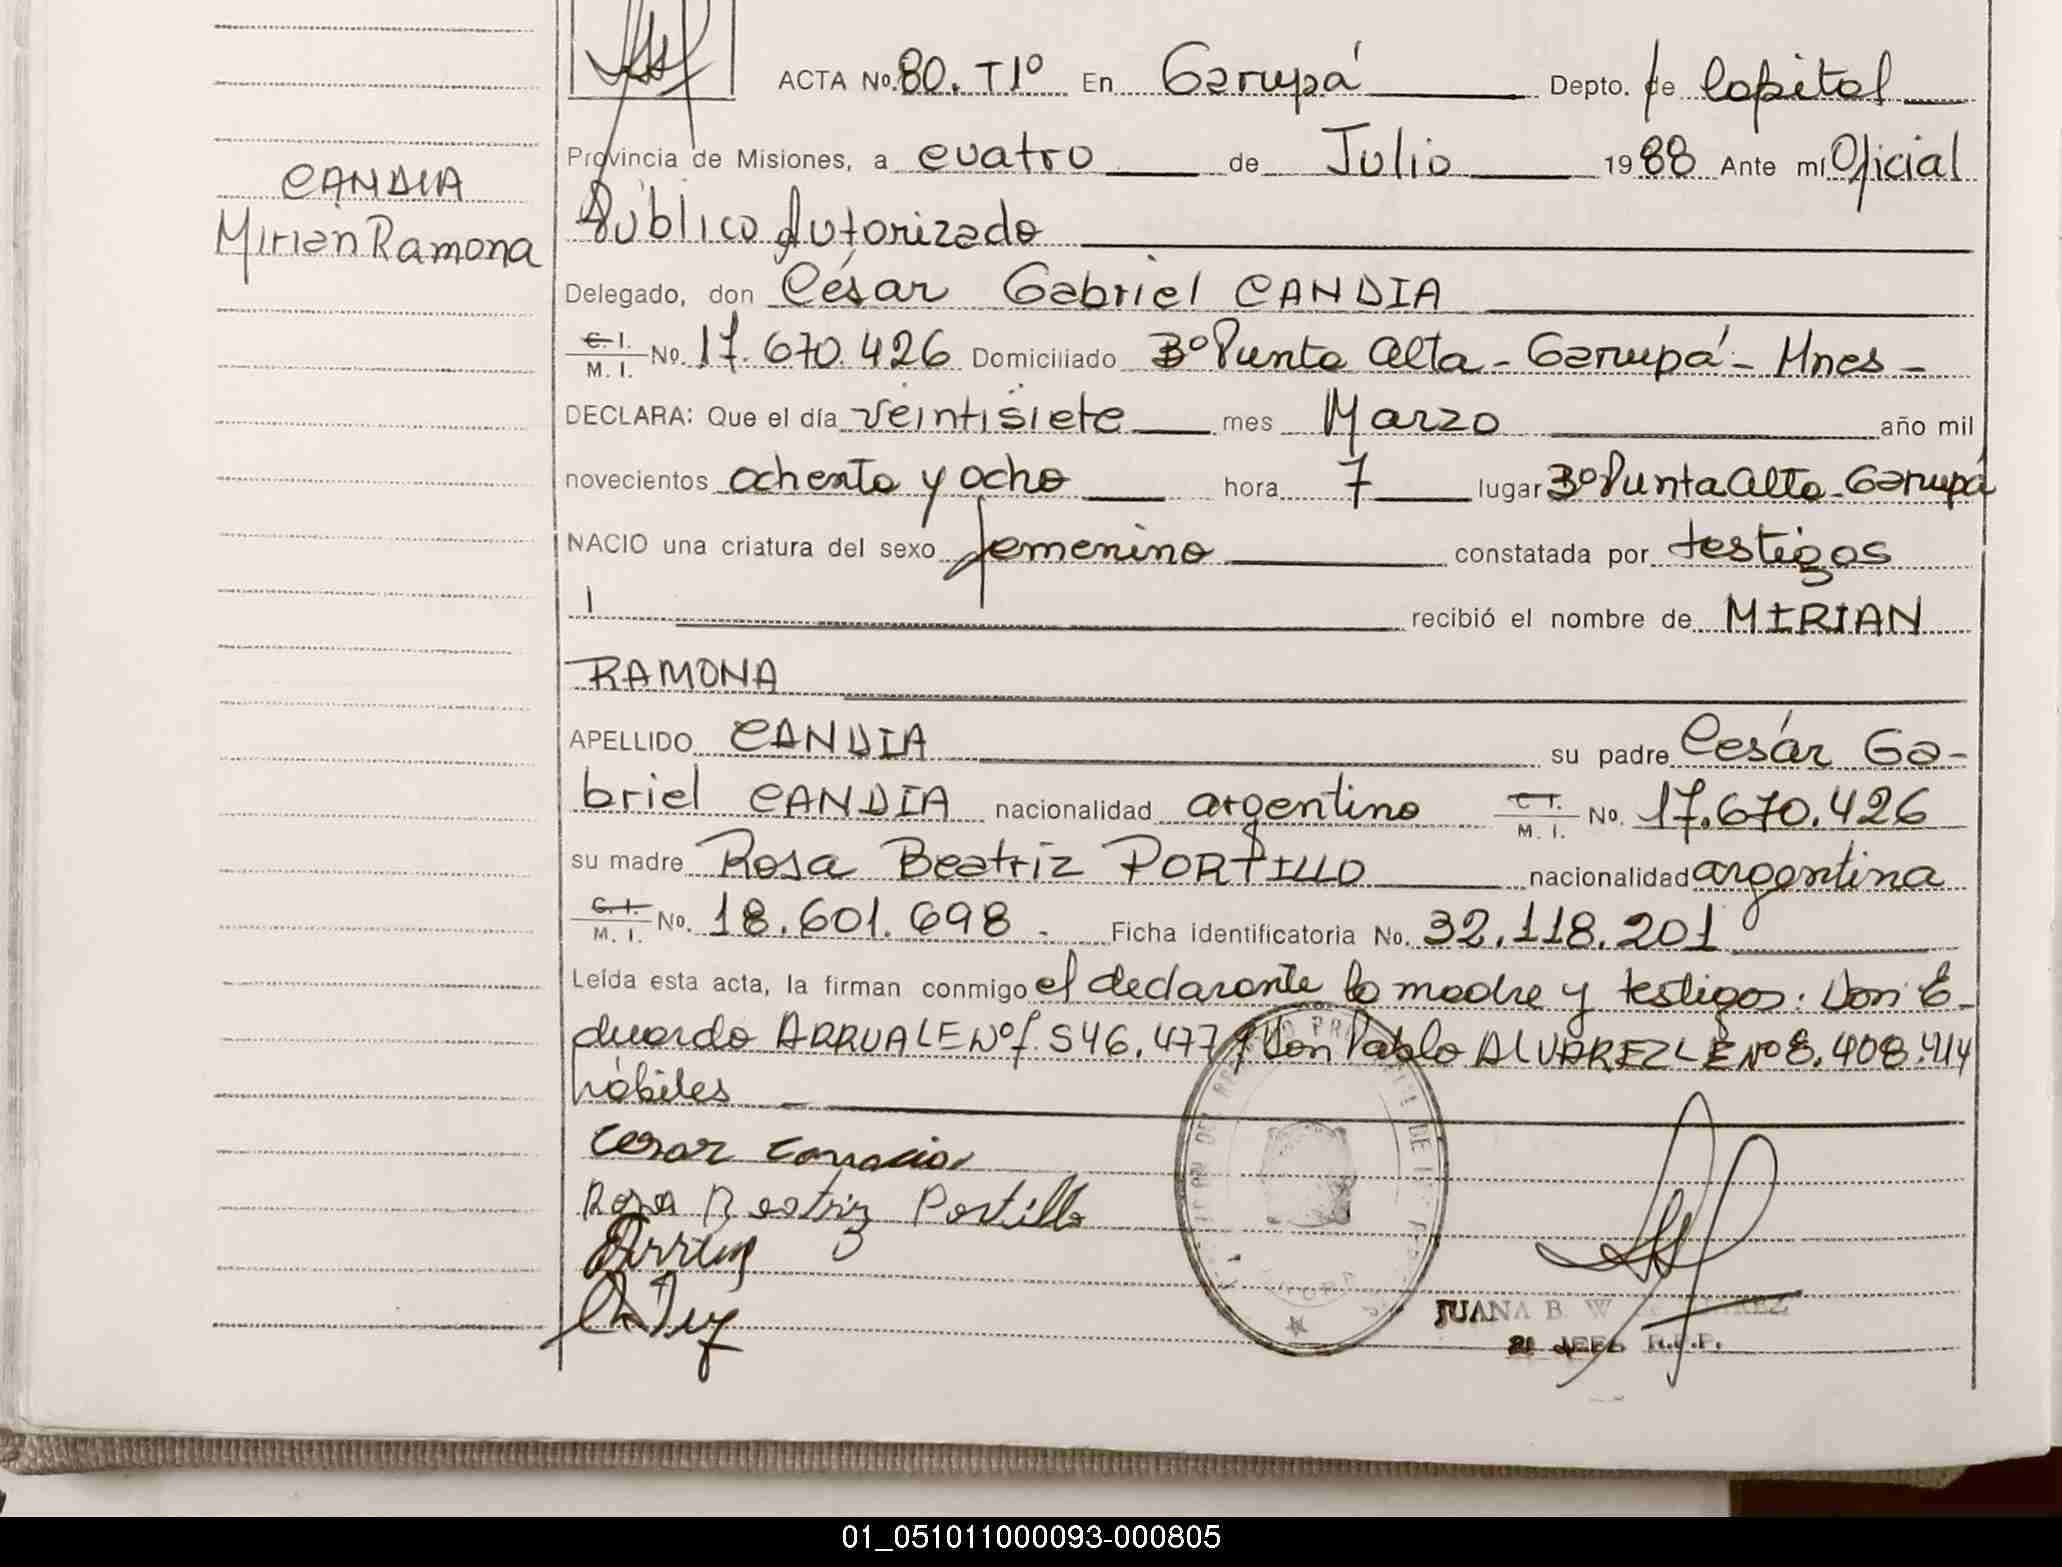 ACTA No. 80. T1º En Garupá Depto. de Capital
Provincia de Misiones, a cuatro de Julio 1988 Ante mí Oficial
Público Autorizado
CANDIA
Mirian Ramona
Delegado, don César Gabriel CANDIA
C. I. / M. I. No. 17.670.426 Domiciliado Bº Punta Alta - Garupá - Mnes -
DECLARA: Que el día veintisiete mes Marzo año mil
novecientos ochenta y ocho hora 7 lugar Bº Punta Alta - Garupá
NACIO una criatura del sexo femenino constatada por testigos
recibió el nombre de MIRIAN
RAMONA
APELLIDO CANDIA su padre César Ga-
briel CANDIA nacionalidad argentino C. I. / M. I. No. 17.670.426
su madre Rosa Beatriz PORTILLO nacionalidad argentina
C. I. / M. I. No. 18.601.698. Ficha identificatoria No. 32.118.201
Leída esta acta, la firman conmigo el declarante la madre y testigos: Don E-
duardo ARRUA LE Nº 7.546.477 y Don Pablo ALVAREZ LE Nº 8.408.414
hábiles
Cesar
Rosa Beatriz Portillo
JUANA B. W
JEFE R.P.P.
01_051011000093-000805